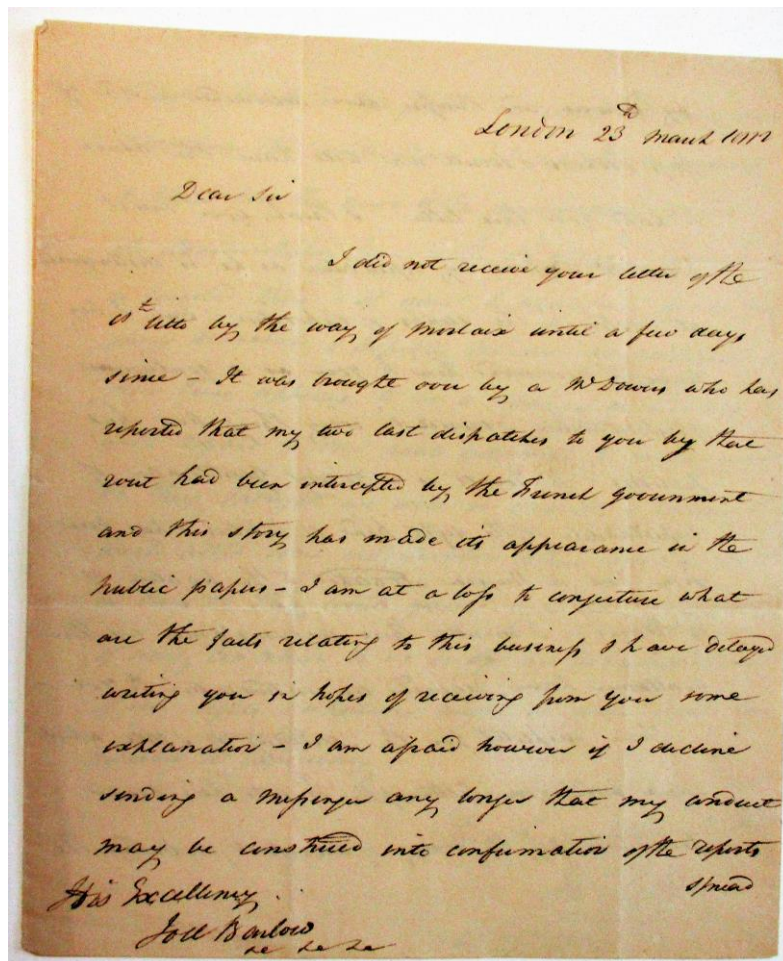 London 23th March 1812
Dear Sir
I did not receive your letter of the
ulto by the way of Morlaix until a few days
since - It was brought over by a Mr Downs who has
reported that my two last dispatches to you by that
rout had been intercepted by the French government
and this story has made its appearance in the
public papers - I am at a loss to conjecture what
are the facts relating to this business I have delayed
writing you in hopes of receiving from you some
explanation - I am afraid however if I decline
sending a messenger any longer that my conduct
may be construed into confirmation of the reports
spread
His Excellency
Joel Barlow